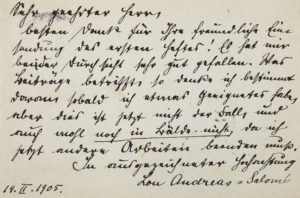 Sehr geehrter Herr,
besten Dank für Ihre freundliche Ein-
sendung des ersten Heftes! Es hat mir
bei der Durchsicht sehr gut gefallen. Was
Beiträge betrifft, so denke ich bestimmt
daran, sobald ich etwas Geeignetes habe,
aber dies ist jetzt nicht der Fall, und
auch wohl noch in Bälde nicht, da ich
jetzt andere Arbeiten beenden muß.
In ausgezeichneter Hochachtung
Lou Andreas-Salomé
14. II. 1905.